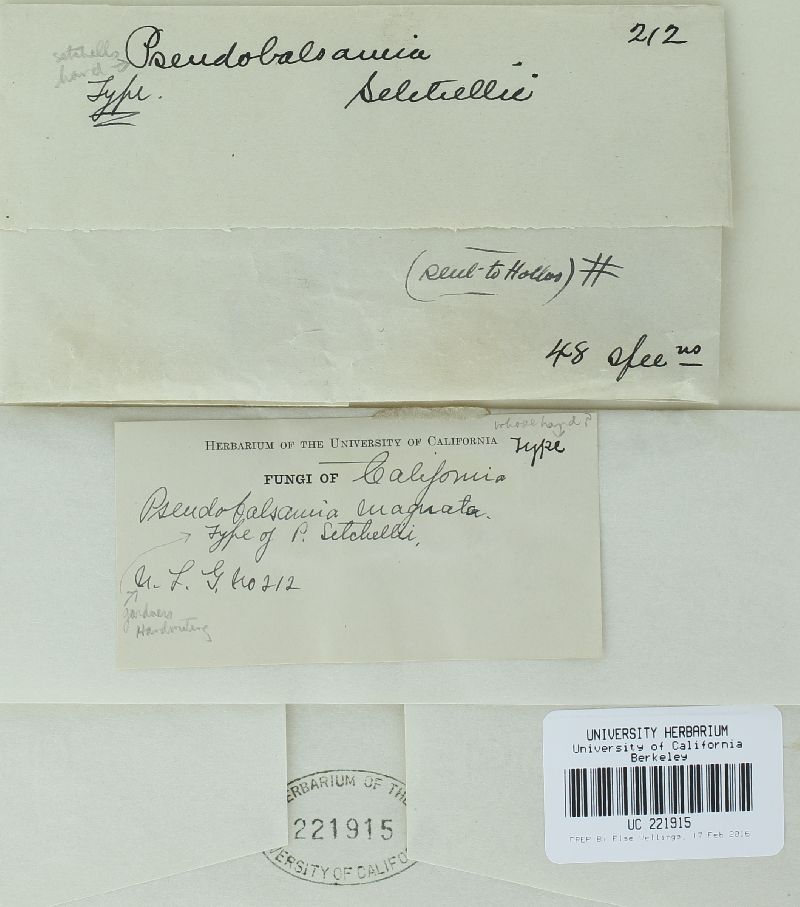 212
setchells Pseudobalsamia
hand →
Type. Setchellii
(sent to Hollos) #
48 specns
whose hand?
HERBARIUM OF THE UNIVERSITY OF CALIFORNIA Type
FUNGI OF California
Pseudobalsamia magnata.
Type of P. Setchellii,
N. L. G. No 212
gardners
Handwriting
HERBARIUM OF THE
221915
UNIVERSITY OF CALIFO
UNIVERSITY HERBARIUM
University of California
Berkeley
UC 221915
PREP By Else Vellinga, 17 Feb 2016